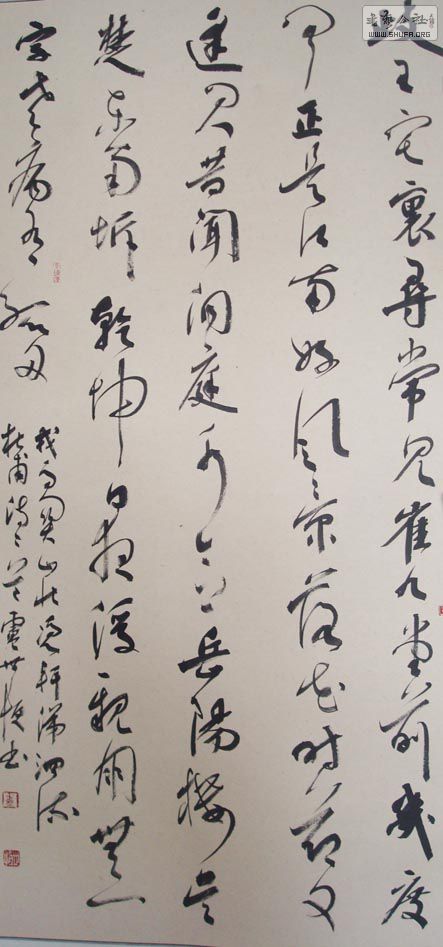 岐王宅裏尋常見崔九堂前幾度
聞正是江南好風景落花時節又
逢君昔聞洞庭水今上岳陽樓吳
楚東南坼乾坤日夜浮親朋無一
字老病有孤舟
戎馬關山北憑軒涕泗流
杜甫詩二首 書
書法公社
WWW.SHUFA.ORG